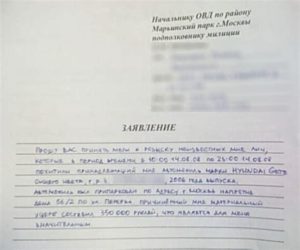 Начальнику ОВД по району
Марьинский парк г.Москвы
подполковнику милиции
ЗАЯВЛЕНИЕ
Прошу Вас принять меры к розыску неизвестных мне лиц,
которые в период времени с 10:00 14.08.08 по 23:00 14.08.08
похитили принадлежащий мне автомобиль марки Hyundai Getz
синего цвета, г.р.з. , 2006 года выпуска.
Автомобиль был припаркован по адресу г. Москва напротив
дома 56/12 по ул. Перерва. Причинённый мне материальный
ущерб составил 350 000 рублей, что является для меня
значительным.